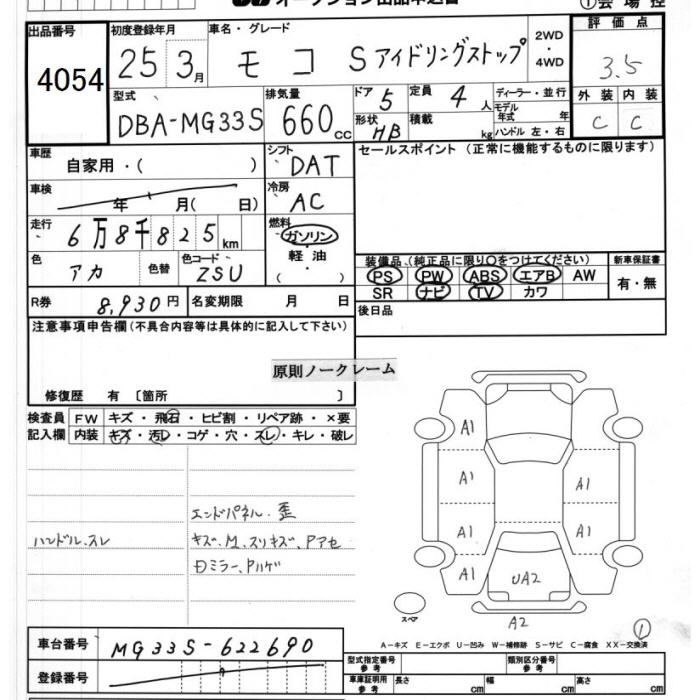 オークション出品申込書
①会場控
出品番号
4054
初度登録年月
25 3月
車名・グレード
モコ Sアイドリングストップ
2WD
・
4WD
評価点
3.5
型式
DBA-MG33S
排気量
660cc
ドア 5
定員 4 人
形状 HB
積載 kg
ディーラー・並行
モデル年式 年
ハンドル 左・右
外装 内装
C C
車歴
自家用・( )
シフト
DAT
セールスポイント (正常に機能するものに限ります)
車検
年 月( 日)
冷房
AC
走行
6万8千825km
燃料
ガソリン
軽油
( )
色
アカ
色替
色コード
ZSU
装備品 (純正品に限り○をつけてください)
新車保証書
PS PW ABS エアB AW
SR ナビ TV カワ
有・無
R券
8,930円
名変期限 月 日
後日品
注意事項申告欄(不具合内容等は具体的に記入して下さい)
原則ノークレーム
修復歴 有 〔箇所 〕
検査員
記入欄
FW キズ・飛石・ヒビ割・リペア跡・×要
内装 キズ・汚レ・コゲ・穴・スレ・キレ・破レ
エンドパネル.歪
ハンドル.スレ
キズ、M、スリキズ、Pアセ
Dミラー、Pハゲ
A1
A1
A1
A1
A1
A1
UA2
A2
スペア
①
A-キズ E-エクボ U-凹み W-補修跡 S-サビ C-腐食 XX-交換済
車台番号
MG33S-622690
登録番号
型式指定番号
参考
類別区分番号
参考
車庫証明用
参考
長さ cm
幅 cm
高さ cm